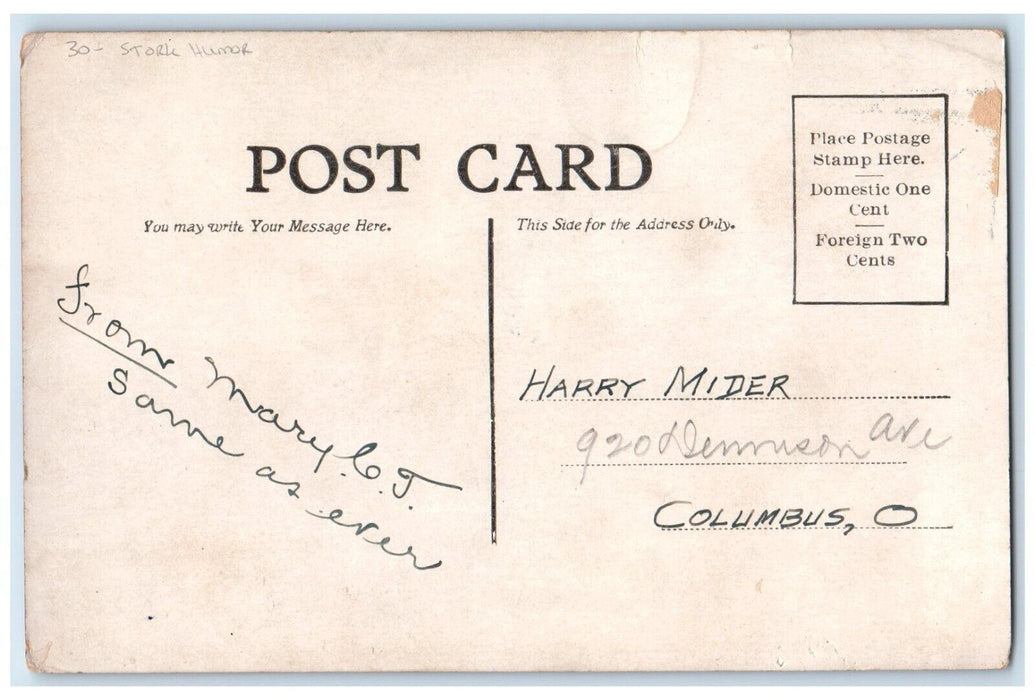 30- STORK HUMOR
POST CARD
You may write Your Message Here.
This Side for the Address Only.
Place Postage
Stamp Here.
Domestic One
Cent
Foreign Two
Cents
from Mary C. T.
Same as ever
HARRY MIDER
920 Dennison Ave
COLUMBUS, O